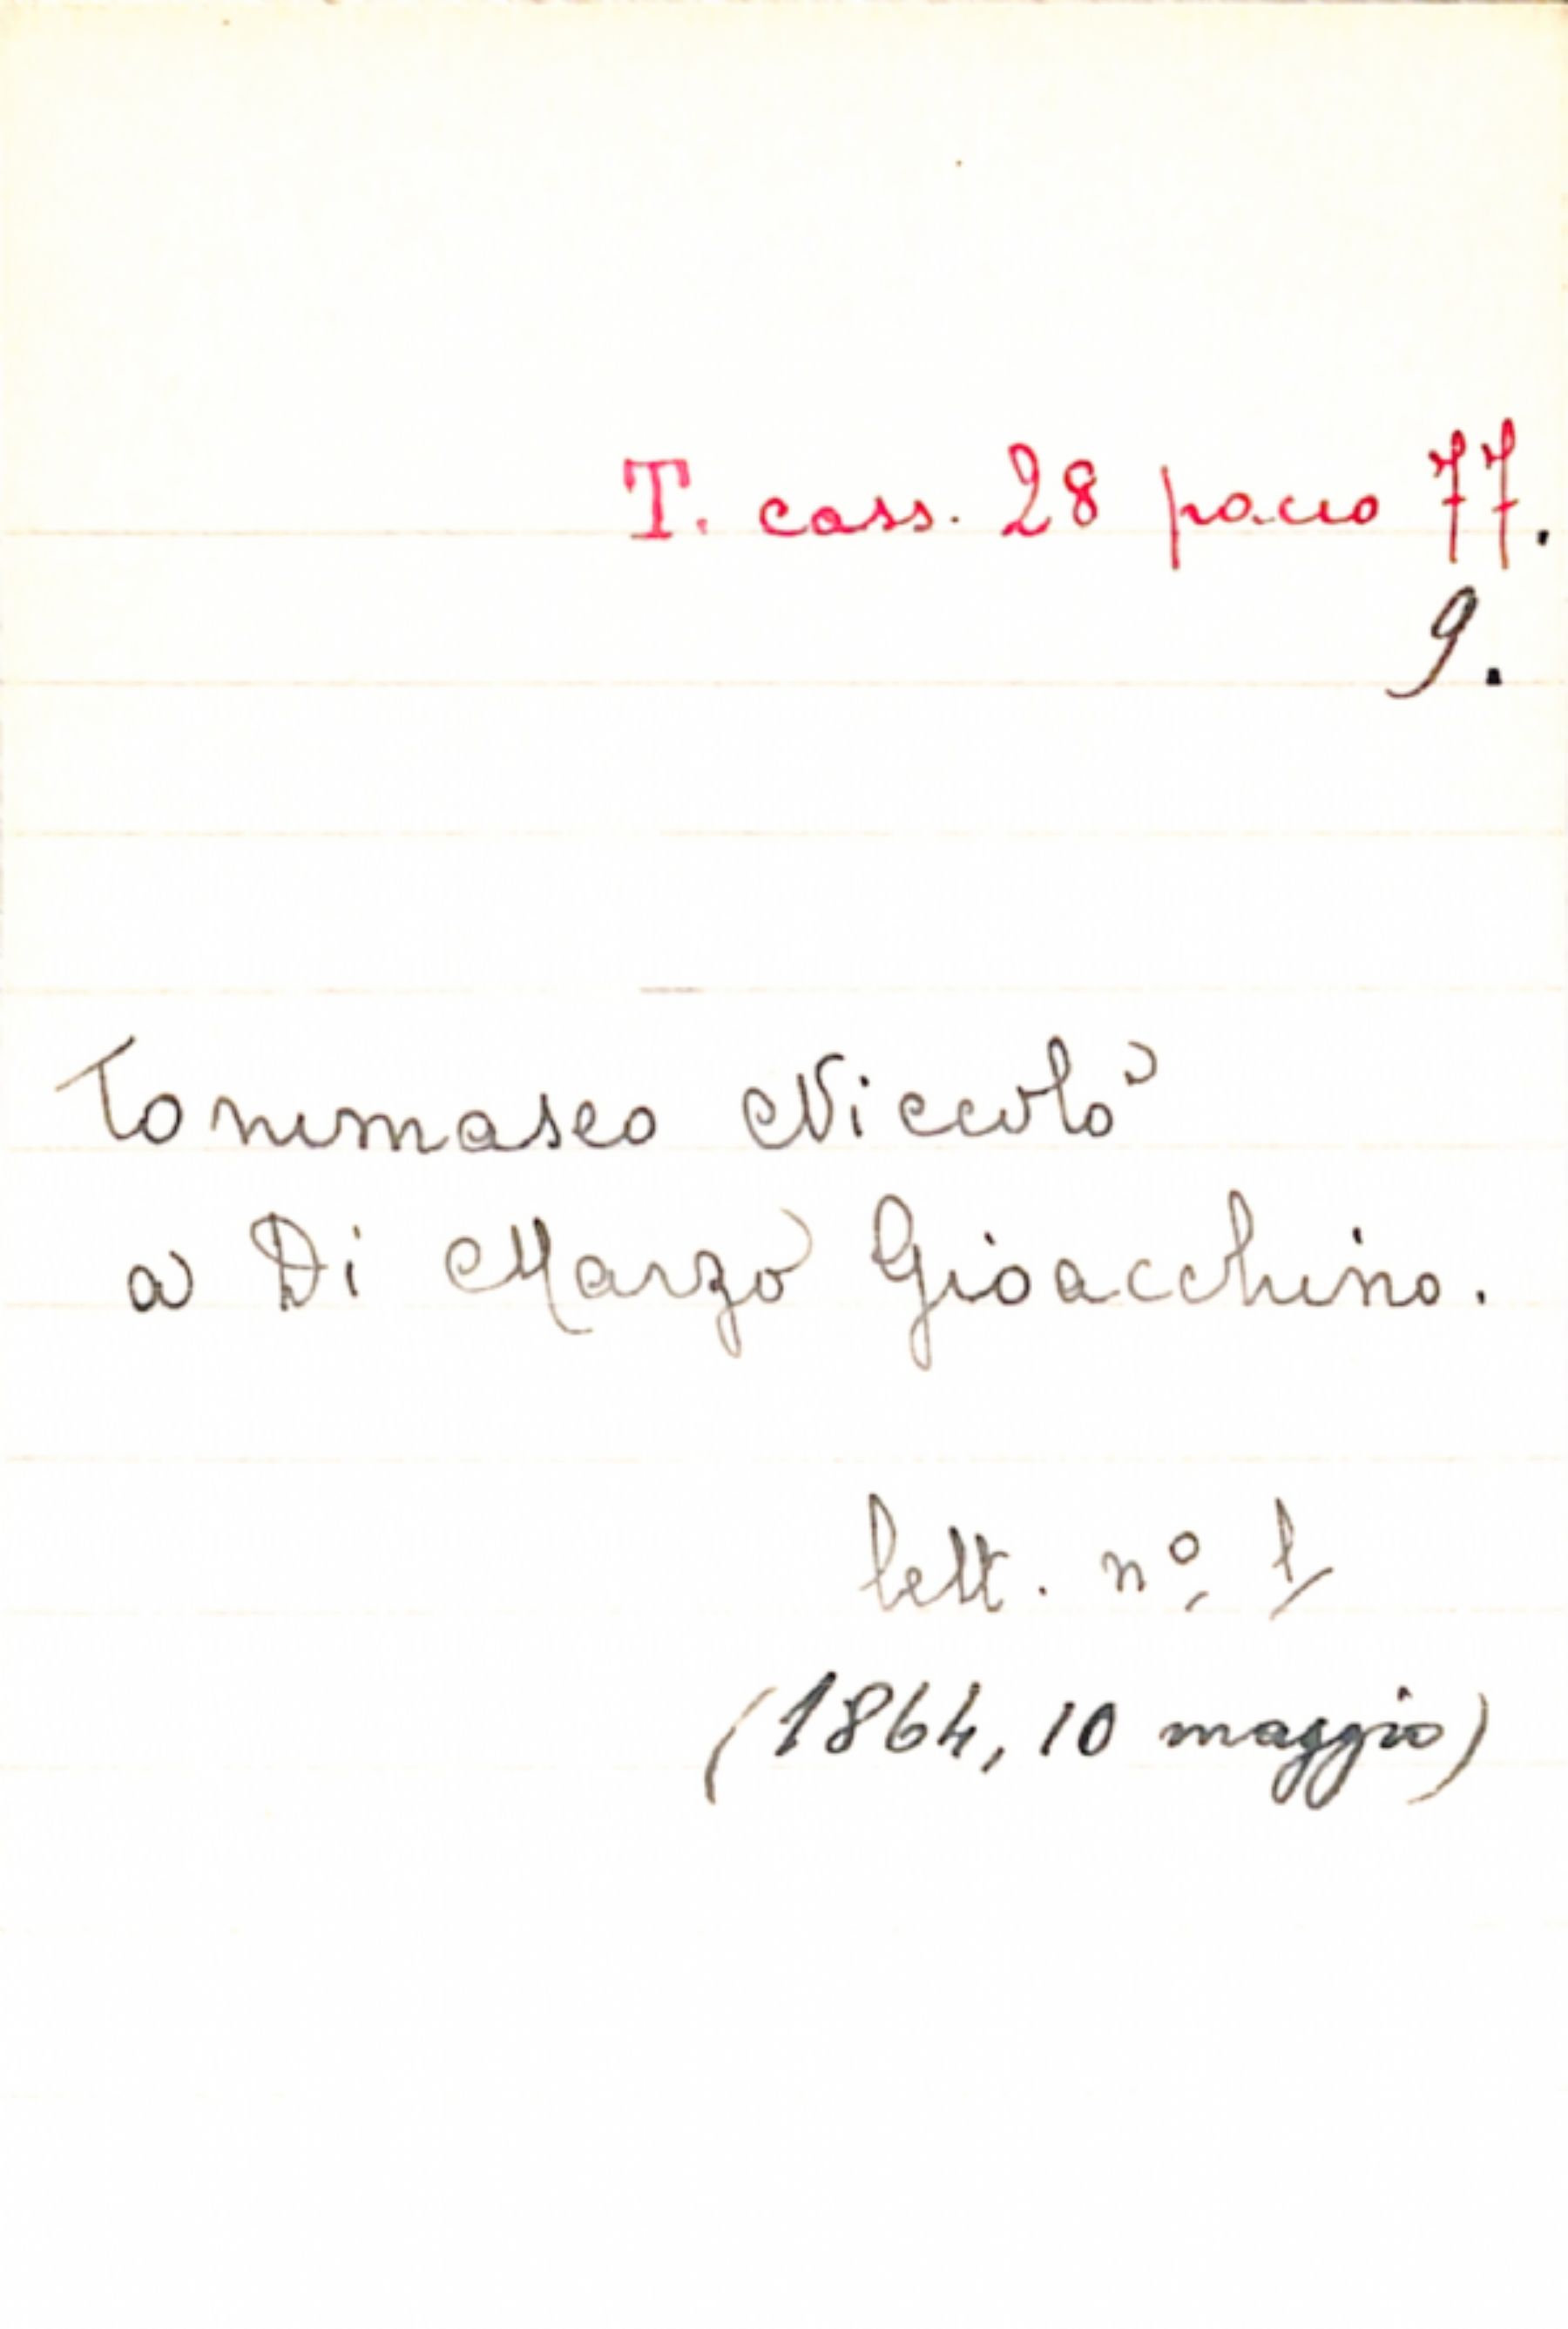 T. cass. 28 pacco 77.
9.
Tommaseo Niccolò
a Di Marzo Gioacchino.
lett. nº 1
(1864, 10 maggio)